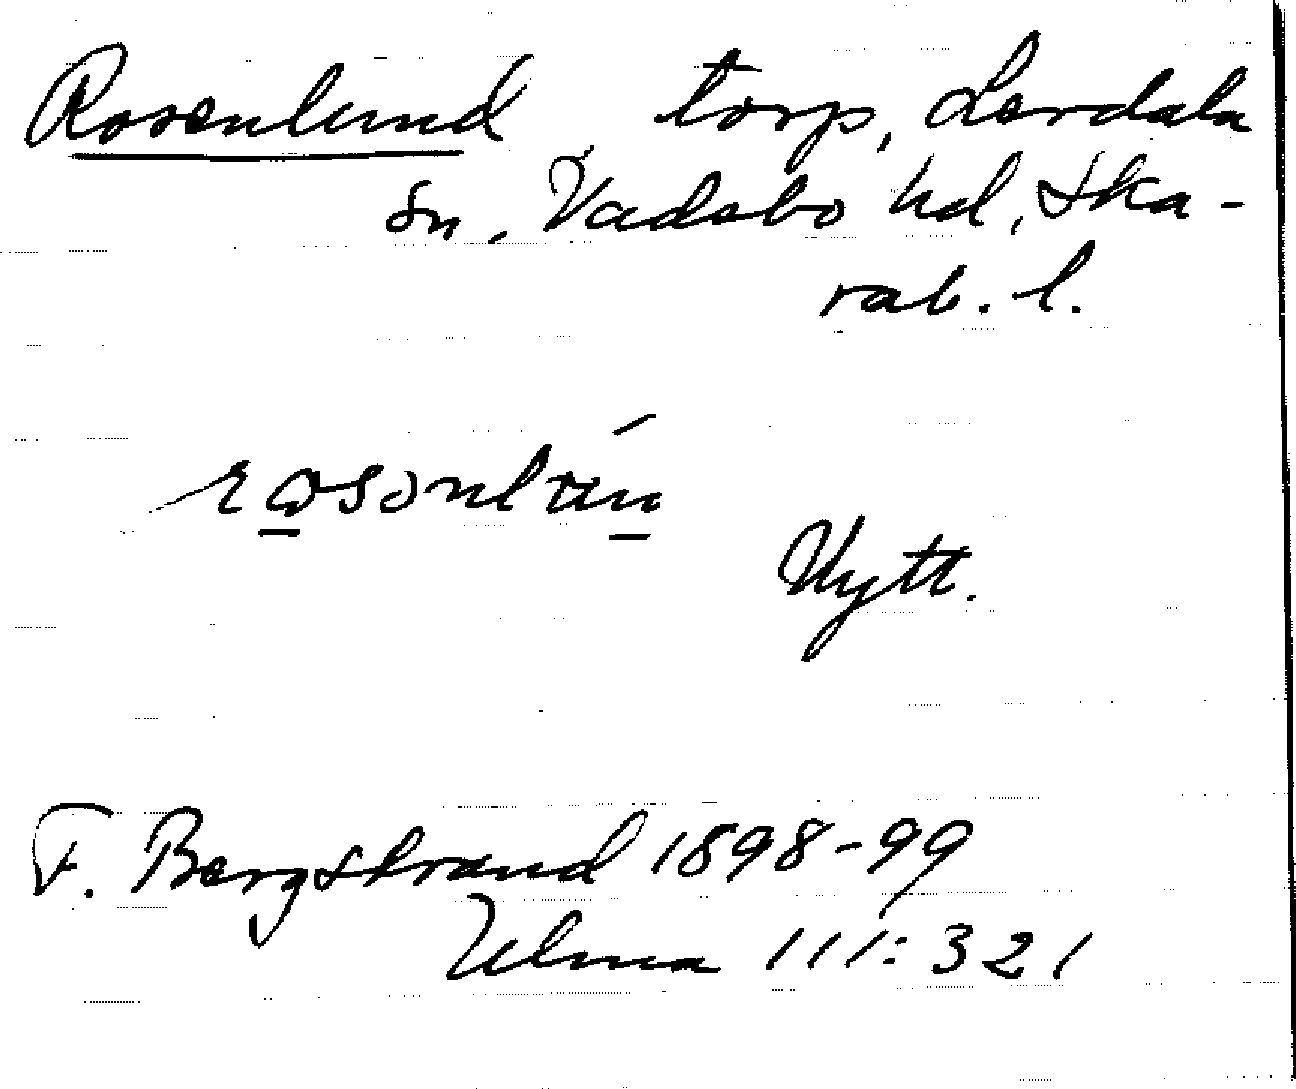 Rosenlund torp, Lerdala
sn, Vadsbo hd, Ska-
rab. l.
Nytt.
F. Bergstrand 1898-99
Ulma 111:321